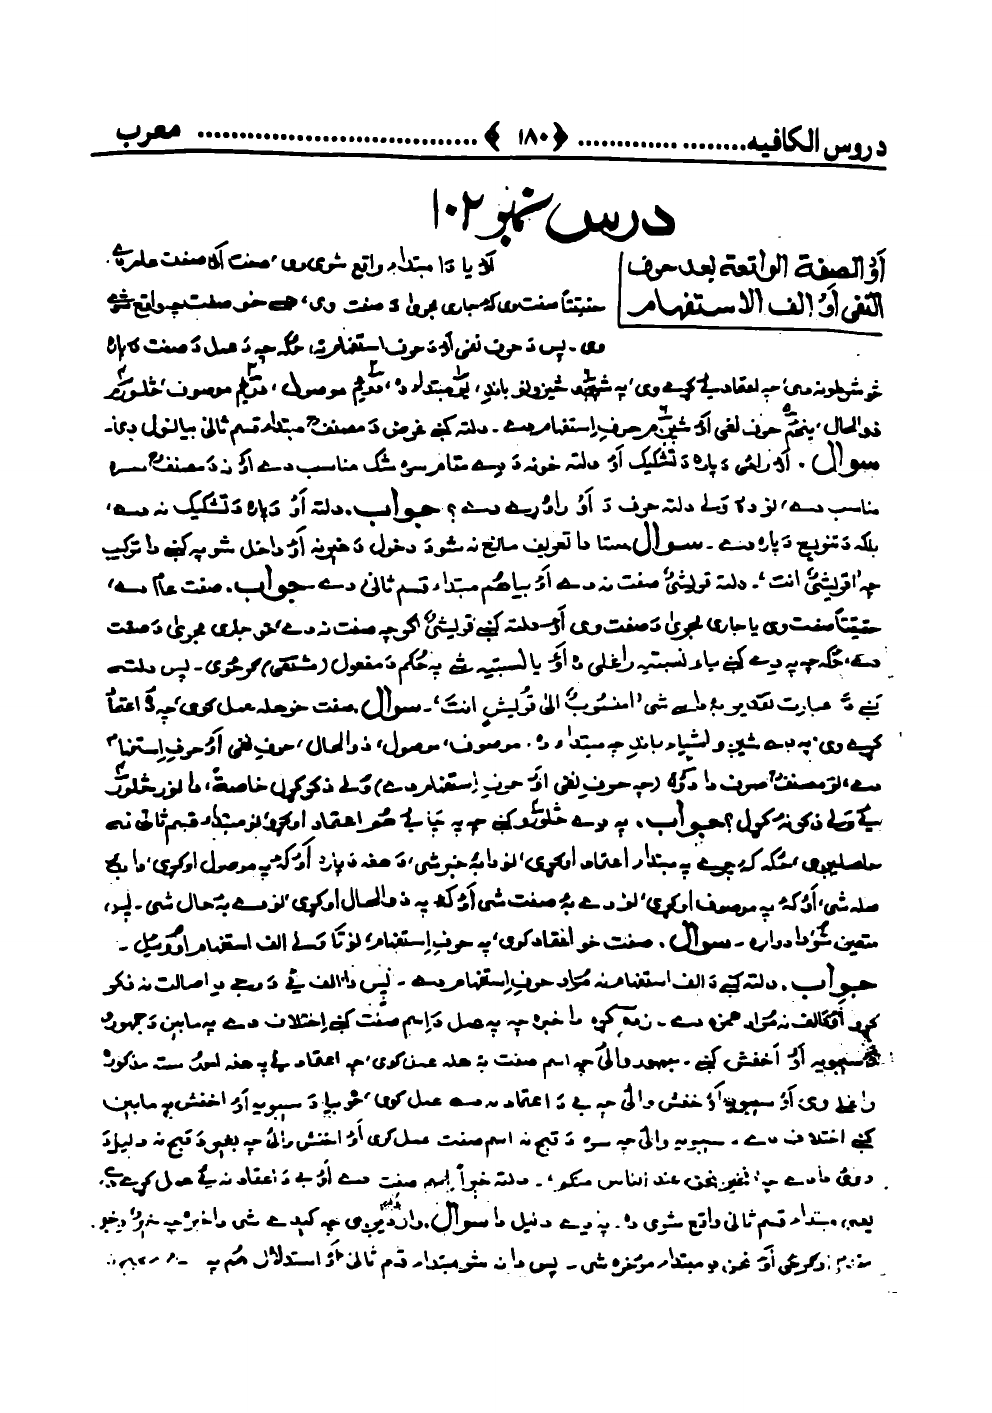 دروس الکافیه ........................ ﴿ ۱۸۰ ﴾ ........................ معرب
درس نمبر ۱۰۲
أَوُ الصفة الواقعة بعد حرف
النفی أَوُ الف الاستفهام
یا دا مبتداء واقع شوی وی، صفت
حقیقتاً صفت وی که جاری مجریٰ دَ صفت وی،
وی ـ پس دَ حرف نفی أو دَ حرف استفهام نه، ځکه چه دَ عمل دَ صفت دَ پاره
شرطونه دی، چه اعتماد ئے کړے وی، په شپږو څیزونو باندِ، یو مبتداء ده، دوئم موصول، درئم موصوف، څلورم
ذوالحال، پنځم حرف نفی أَوُ شپږم حرفِ استفهام دے ـ دلته کښے غرض دَ مصنفؒ مبتداء قسم ثانی بیانول دی ـ
سوال. دَ پاره دَ تشکیک أَوُ دلته خو نه دَ دے مقام سره شک مناسب دے أو نه دَ مصنفؒ سره
مناسب دے، نو دَ ولے دلته حرف دَ أَوُ راوړے دے؟ جواب. دلته أَوُ دَ پاره دَ تشکیک نه دے،
بلکه دَ تنویع دَ پاره دے ـ سوال. ستا دا تعریف مانع نه شو دَ دخول دَ غیر نه أَوُ داخل شو په کښے دا ترکیب
چه اقریشیٌ انت، ـ دلته قریشیٌ صفت نه دے أَوُ بیا هم مبتداء قسم ثانی دے جواب. صفت عام دے،
حقیقتاً صفت وی یا جاری مجریٰ دَ صفت وی أو دلته کښے قریشیٌ اگرچه صفت نه دے، خو جاری مجریٰ دَ صفت
دے، ځکه چه په دے کښے یاء نسبتیه راغلی ده أَوُ یا نسبتیه شے په حُکم دَ مفعول (مشتقی) ګرځوی ـ پس دلته
کښے عبارت تقدیر به داسے شی، أمنسُوبٌ الیٰ قُریشٍ انتَ، ـ سوال. صفت خو هله عمل کوی، چه اعتماد
کړے وی، په دے شپږو اشیاء باندِ چه مبتداء ده. موصوف، موصول، ذوالحال، حرفِ نفی أَوُ حرفِ استفهام
دے، نو مصنفؒ صرف دا دوه (چه حرفِ نفی أَوُ حرفِ استفهام دے) ولے ذکر کول خاصةً، دا نور څلور
ئے ولے ذکر نه کول؟ جواب. په دے څلورو کښے چه په چا ئے هم اعتماد اوکړی، نو مبتداء قسم ثانی نه
حاصلیږی، ځکه که چرے په مبتداء اعتماد اوکړی، نو دا به خبر شی، دَ هغه دَ پاره أَوُ که په موصول اوکړی، دا به
صله شی، أَوُ که په موصوف اوکړی، نو دے به صفت شی أَوُ که په ذوالحال اوکړی، نو دے به حال شی ـ پس،
متعین شو دا دواړه ـ سوال. صفت خو اعتماد کوی، په حرفِ استفهام، نو تا ولے الف استفهام اوویل ـ
جواب. دلته کښے دَ الف استفهام نه مراد حرفِ استفهام دے ـ پس دا الف ئے دَ وجے دَ اصالت نه ذکر
کړو أو دَ الف نه مُراد همزه دے ـ زده کړه دا خبره چه په عمل دَ اسم صفت کښے اختلاف دے په مابین دَ جمهورو
سیبویه أَوُ أخفش کښے ـ جمهور وائی چه اسم صفت به هله عمل کوی، چه اعتماد ئے په هغه امورُ سته مذکوره
راغلے وی أَوُ سیبویه أَوُ خفش وائی چه بے دَ اعتماد نه هم عمل کوی، خو بیا دَ سیبویه أَوُ اخفش په مابین
کښے اختلاف دے ـ سیبویه وائی چه سره دَ قبح نه اسم صفت عمل کوی أَوُ اخفش وائی چه بغیر دَ قبح نه دلیل دَ
دوی دا دے چه، فخیر نحن عند الناس منکم، ـ دلته خیرٌ اسم صفت دے أَوُ بے دَ اعتماد نه ئے عمل کړے،
یعنی مبتداء قسم ثانی واقع شوی ده ـ په دے دلیل دا سوال. واردیږی چه کیدے شی دا خبره چه خیرٌ خبر
مقدم اوګرځی أَوُ نحن دِ مبتداء مؤخره شی ـ پس دا نه شو مبتداء قسم ثانی أَوُ استدلال هُم په